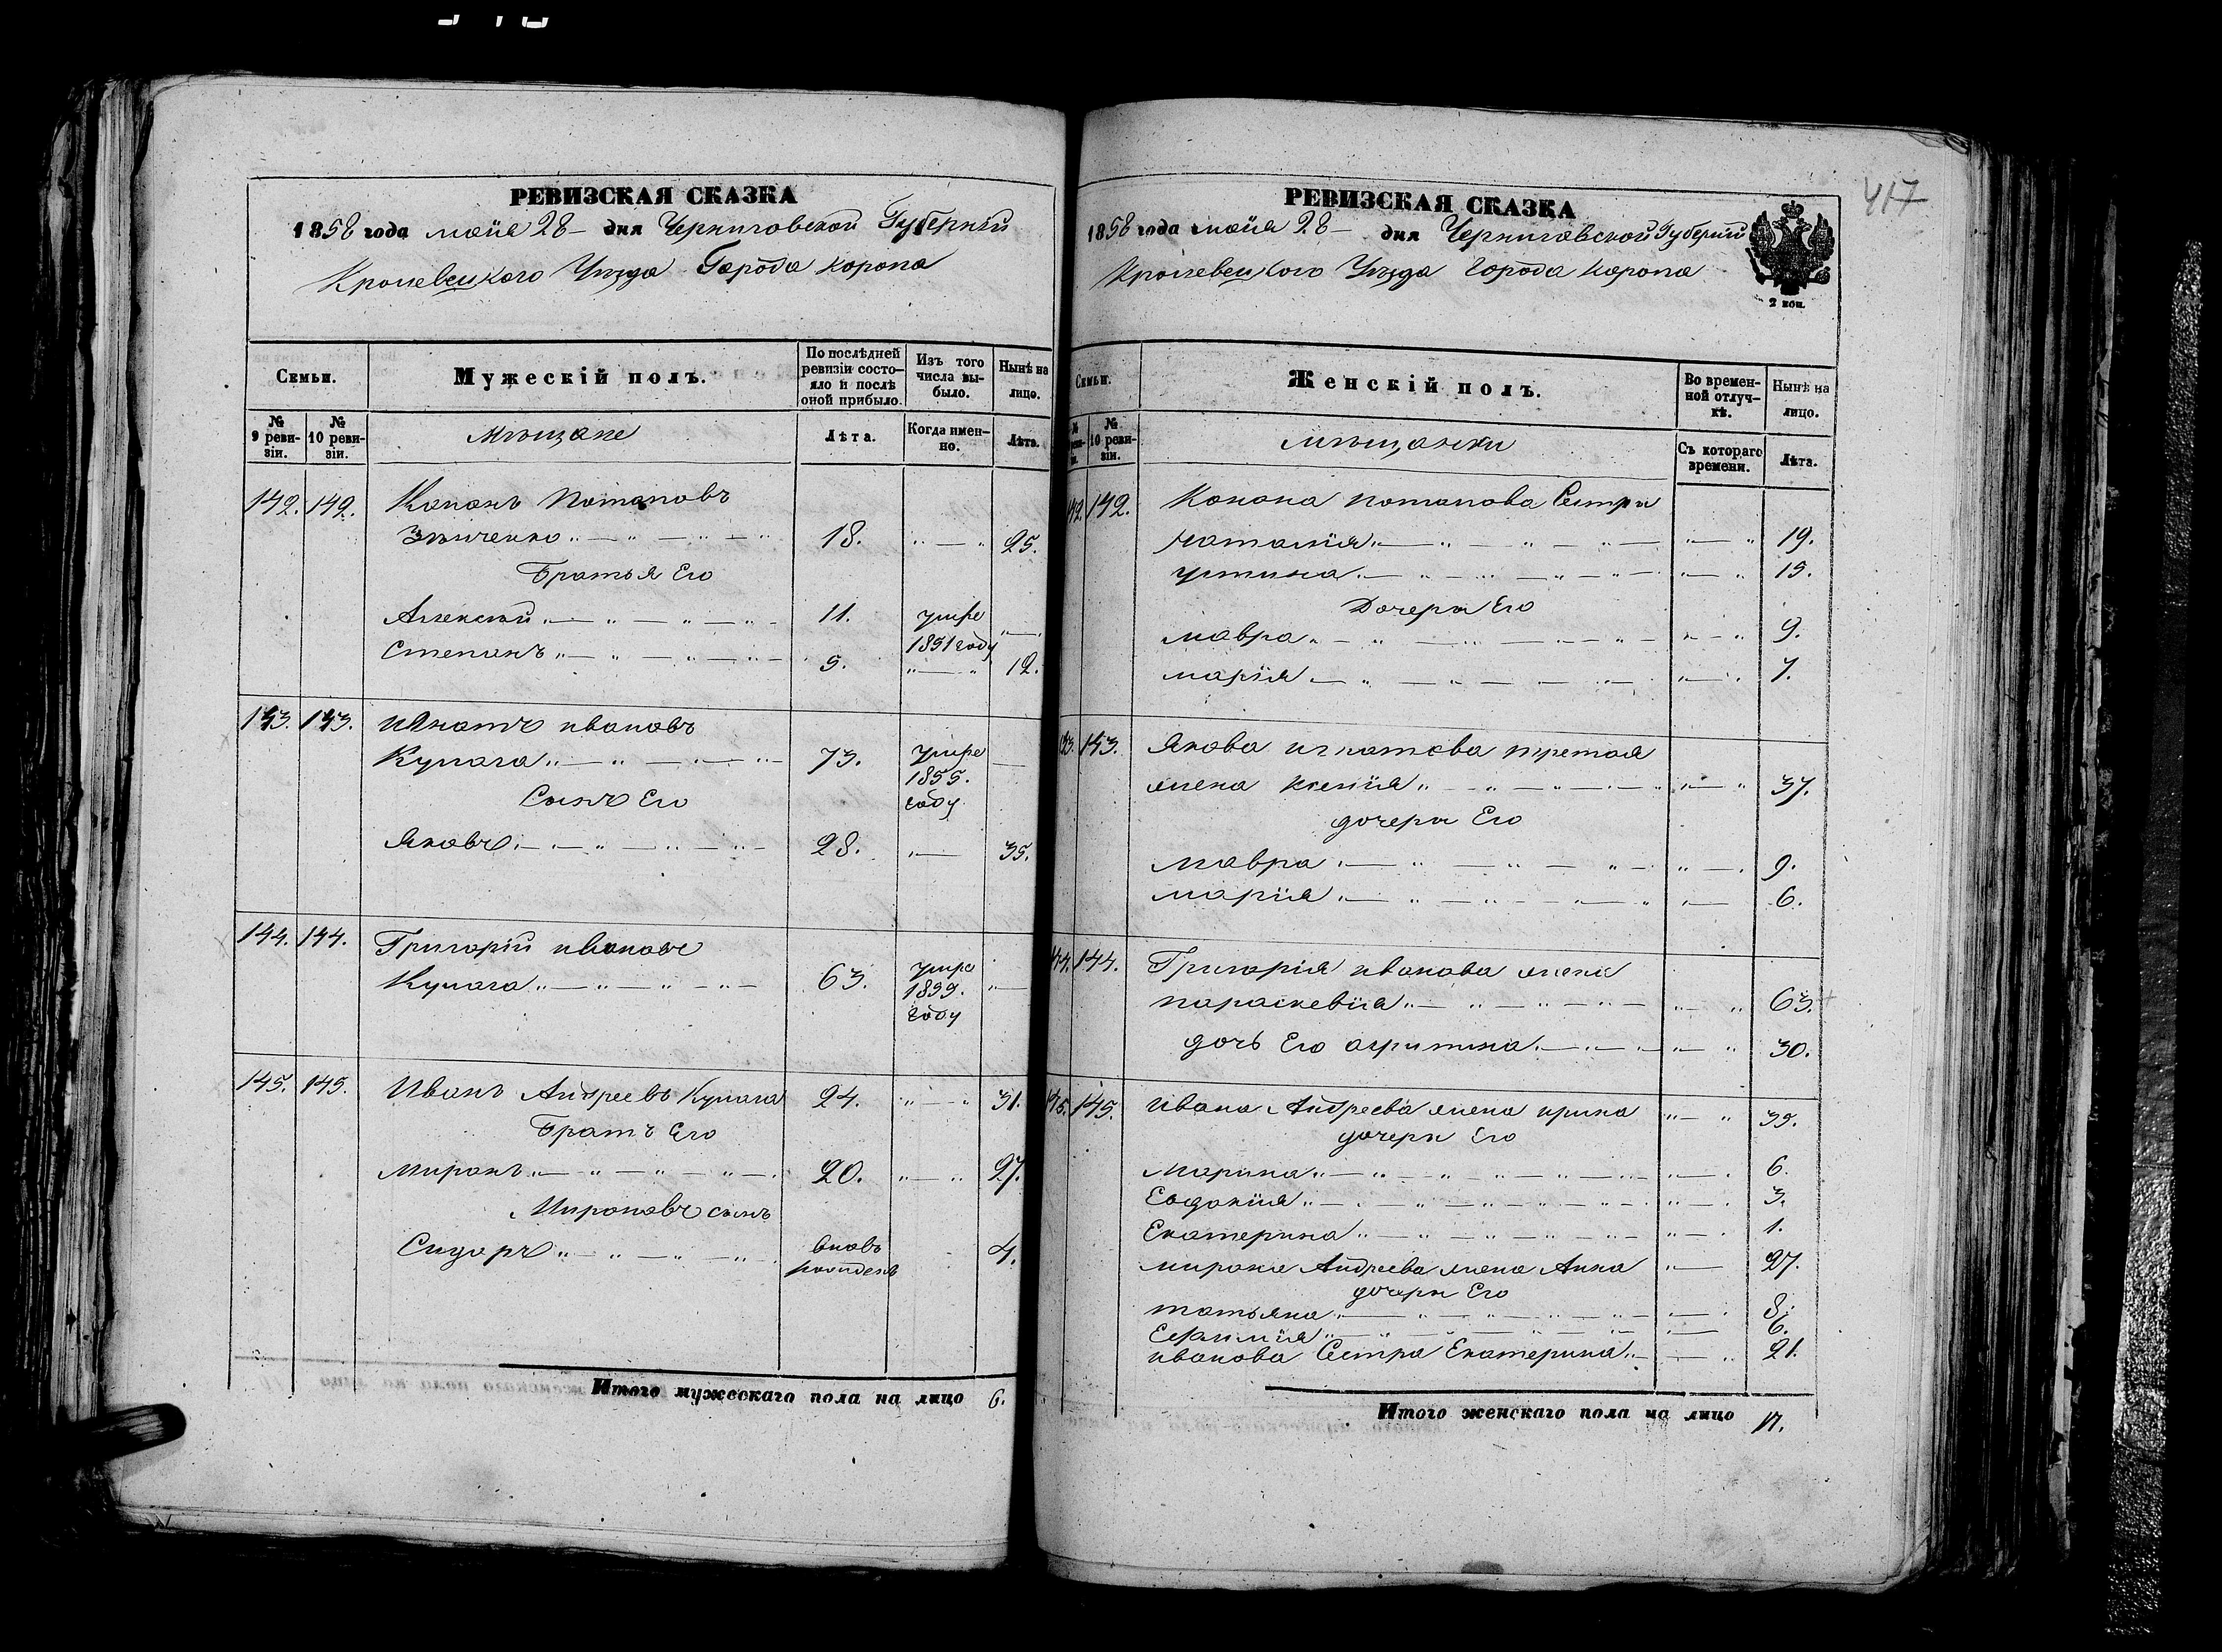 РЕВИЗСКАЯ СКАЗКА
1858 года маія 28 — дня Черниговской Губерніи
Кролевецкого Уезда Города Коропа
Семьи.
Мужескій полъ.
По послѣдней
ревизіи состо-
яло и послѣ
оной прибыло.
Изъ того
числа вы-
было.
Нынѣ на
лицо.
№
9 реви-
зіи.
№
10 реви-
зіи.
Мѣщане
Лѣта.
Когда имен-
но.
Лѣта.
142. 142. Кононъ Потаповъ
18. 25.
Братья Его
Алексѣй 11. умре
1851 году
Степанъ 5. 12.
143. 143. Игнатъ Ивановъ
Кулага 73. умре
1855.
году
Сынъ Его
Яковъ 28. 35.
144. 144. Григорій Ивановъ
Кулага 63. умре
году
145. 145. Иванъ Андреевъ Кулага 24. 31.
Братъ Его
Миронъ 20. 27.
Мироновъ сынъ
Сидоръ вновь 4.
рожденъ
Итого мужескаго пола на лицо 6.
417
РЕВИЗСКАЯ СКАЗКА
1858 года маія 28 — дня Черниговской Губерніи
Кролевецкого Уезда Города Коропа
2 коп.
Семьи.
Женскій полъ.
Во времен-
ной отлуч-
кѣ.
Нынѣ на
лицо.
№
10 реви-
зіи.
мѣщанки
Съ котораго
времени.
Лѣта.
142. 142. Конона Потапова Сестры
Наталія 19.
Устина 15.
Дочери Его
Мавра 9.
Марія 7.
143. 143. Якова Игнатова третая
жена Ксенія 37.
дочери Его
Мавра 9.
Марія 6.
144. 144. Григорія Иванова жена
Параскевія 63.
дочь Его Агрипина 30.
145. 145. Ивана Андреева жена Ирина 35.
дочери Его
Марина 6.
Евдокія 3.
Екатерина 1.
Мирона Андреева жена Анна 27.
дочери Его
Татьяна 8.
Ефимія 6.
Иванова Сестра Екатерина 21.
Итого женскаго пола на лицо 17.